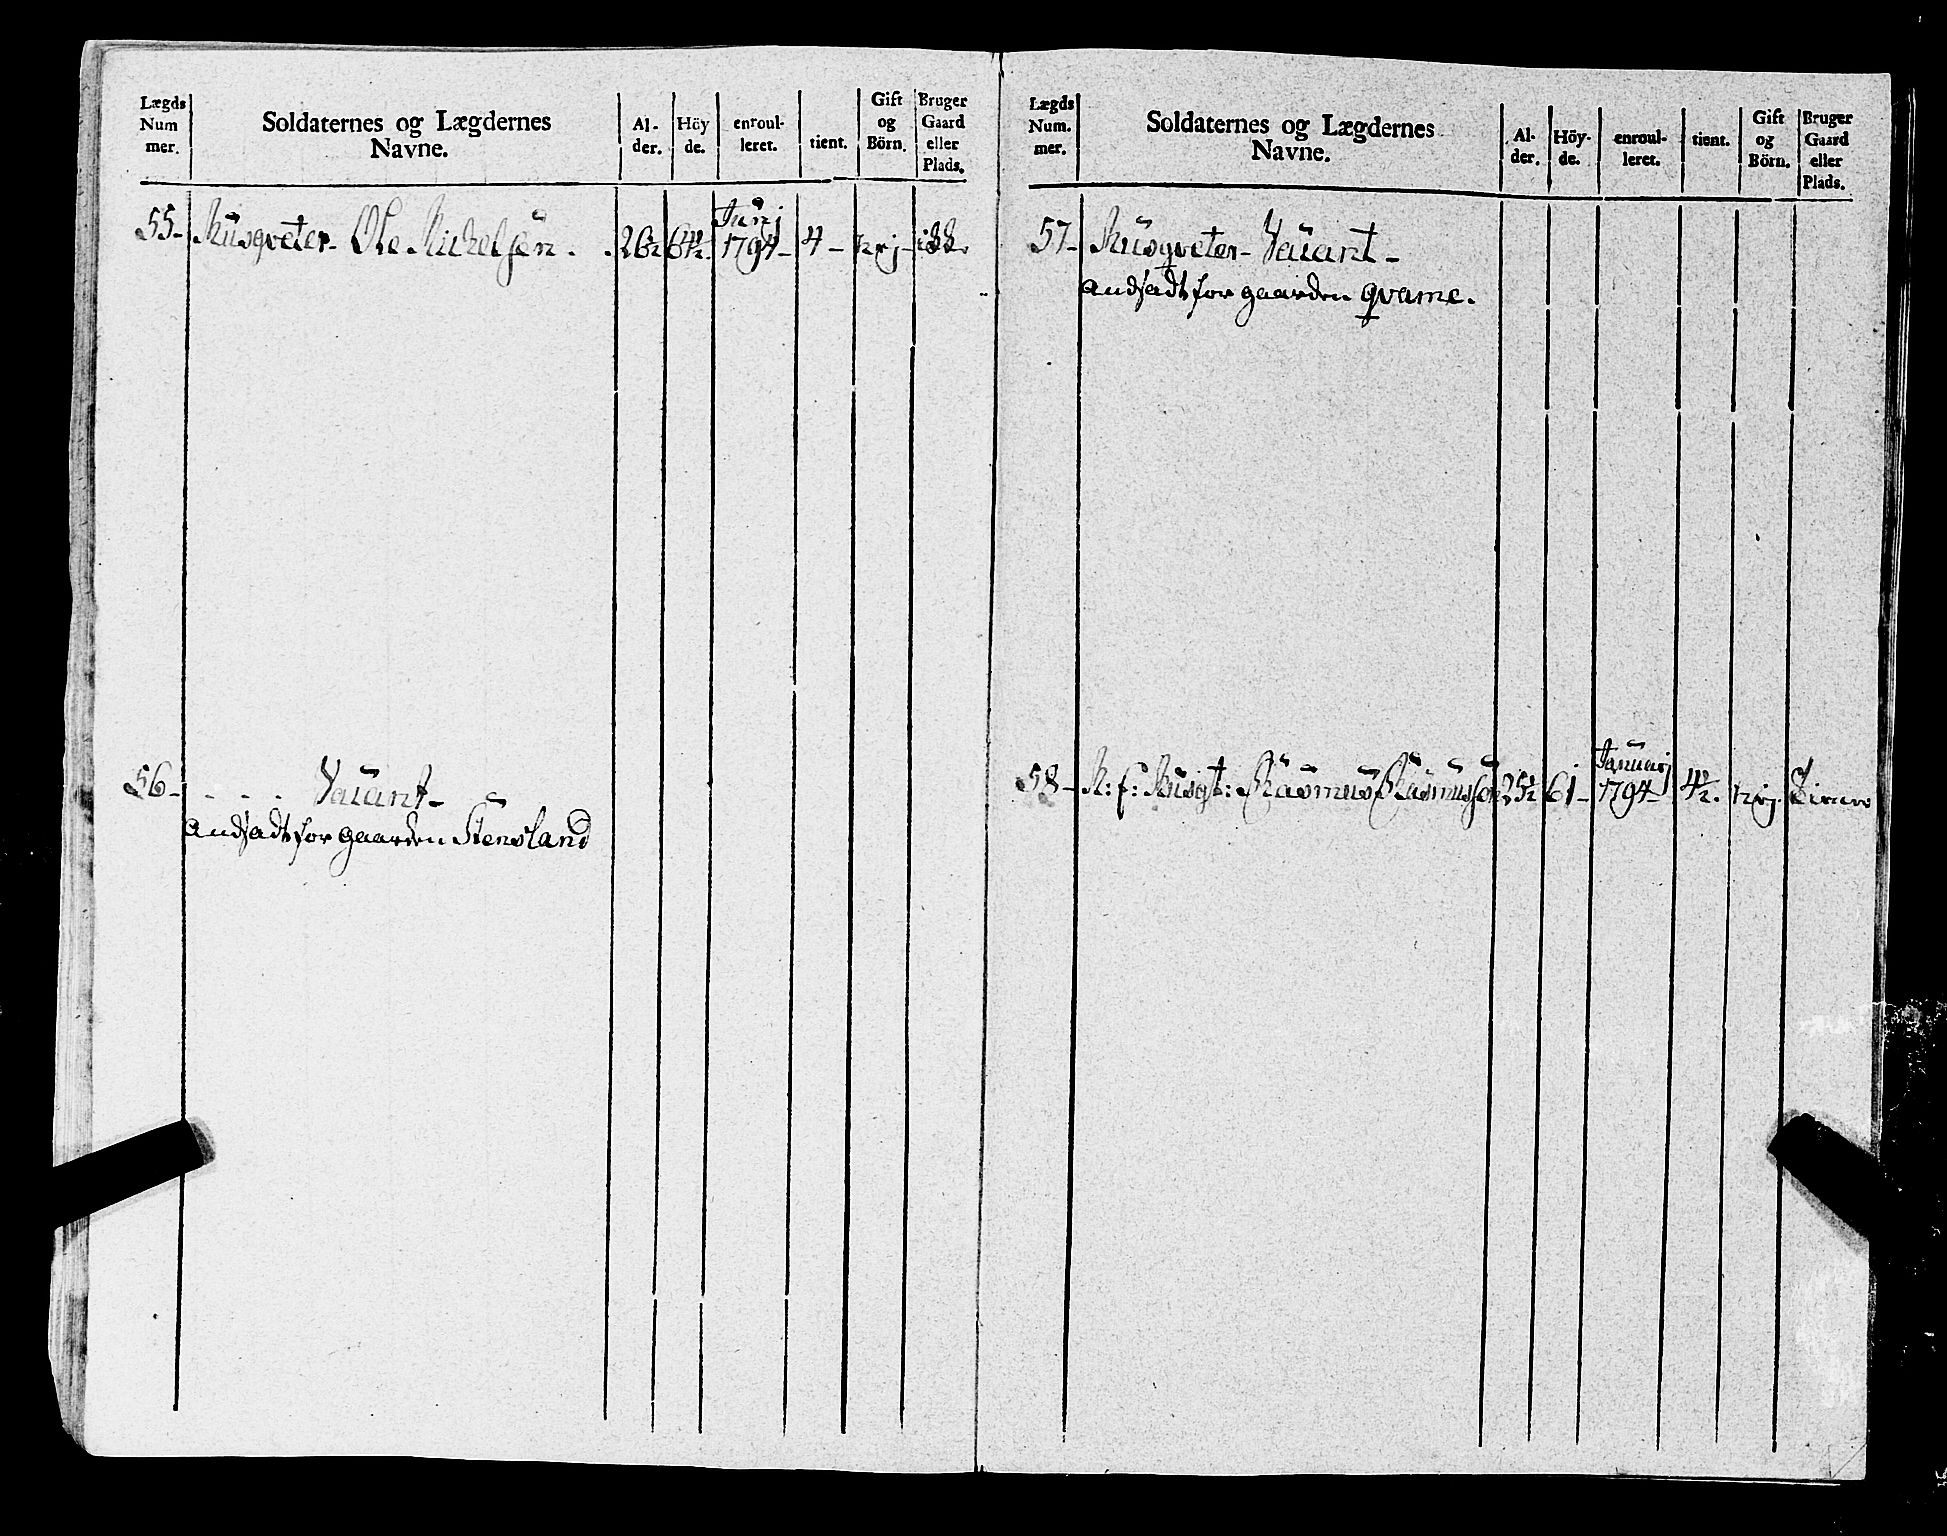 Lægds Num mer. Soldaternes og Lægdernes Navne. Al- der. Höy de. enroul- leret. tient. Gift og Börn. Bruger Gaard eller Plads.
Junj
55- Musqveter- Ole Michelsen. 26½ 64½. 1794- 4- nej-
56- - - - Vacant-
Andsadt for gaarden Stensland
Lægds Num. mer. Soldaternes og Lægdernes Navne. Al- der. Höy- de. enroul- leret. tient. Gift og Börn. Bruger Gaard eller Plads.
57- Musqveter- Vacant-
Andsadt for gaarden qvame.
Januarj
58- N: f: Musqt: Rasmus Rasmussen 25½ 61- 1794- 4½. nej.